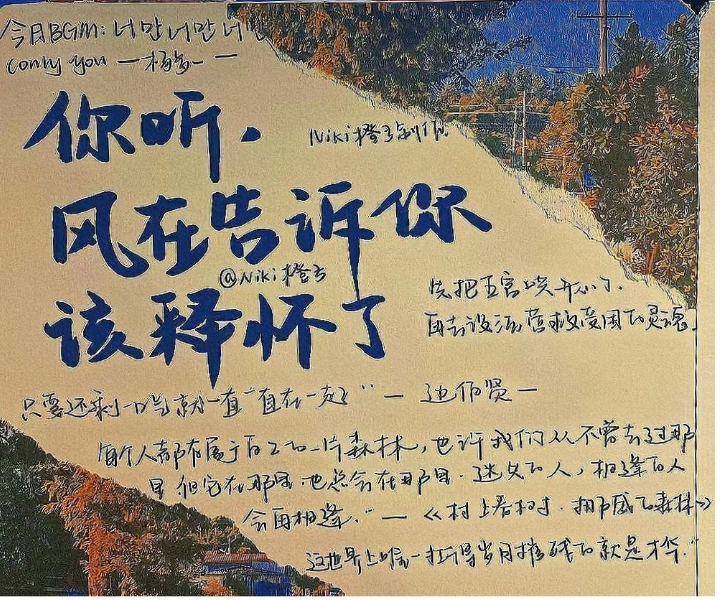 今日BGM: 너만너만너만
(only you — 杨
你听,
Niki橙子制作
风在告诉你
@Niki橙子
该释怀了
先把五官哭开心了,
再去设法营救受困的灵魂.
只要还剩一口气就一直一直在一起" — 边伯贤 —
"每个人都有属于自己的一片森林,也许我们从不曾去过那
里 但它在那里.也总会在那里. 迷失的人,相逢的人
会再相逢." — 《村上春树·挪威的森林》
这世界上唯一扛得岁月摧残的就是才华."